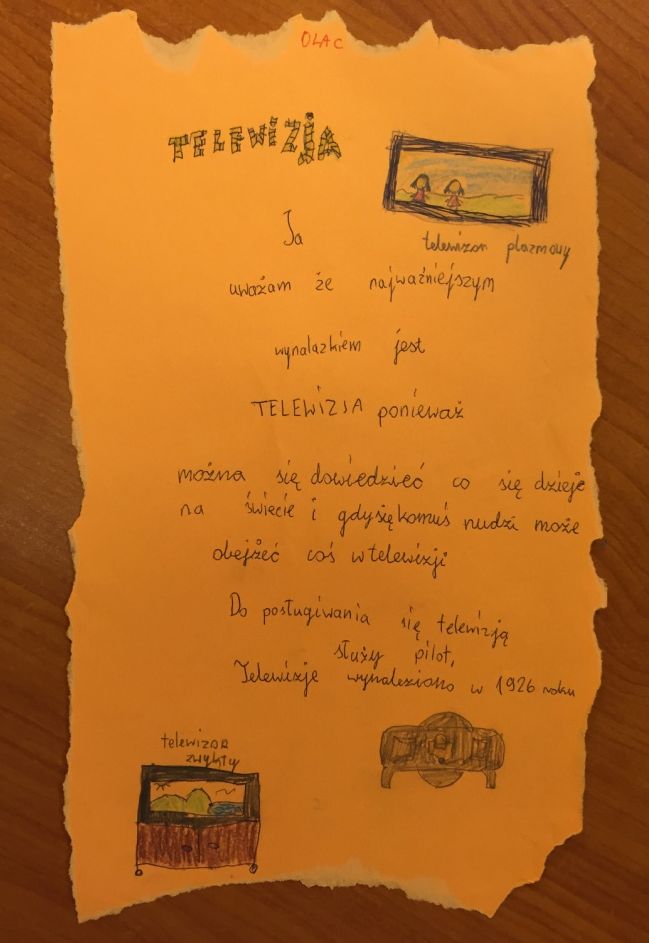 OLA C
TELEWIZJA
telewizor plazmowy
Ja
uważam że najważniejszym
wynalazkiem jest
TELEWIZJA ponieważ
można się dowiedzieć co się dzieje
na świecie i gdy się komuś nudzi może
obejżeć coś w telewizji
Do posługiwania się telewizją
służy pilot,
Telewizje wynaleziono w 1926 roku
telewizor
zwykły